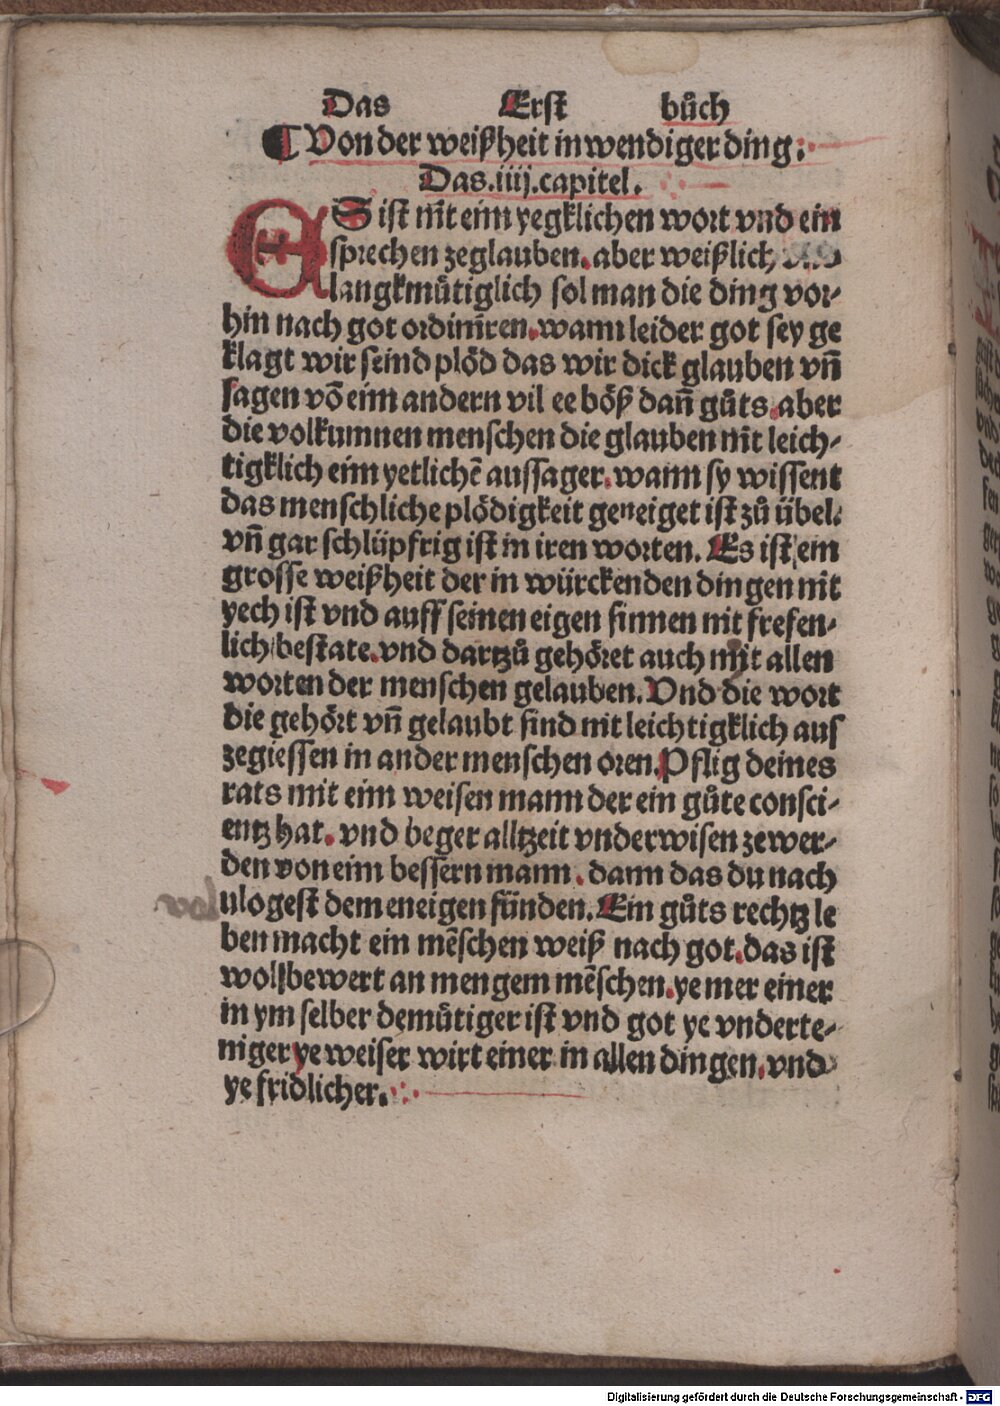 Das Erst bůch
¶ Von der weißheit inwendiger ding.
Das .iiij. capitel.
ES ist nit eim yegklichen wort vnd ein
sprechen zeglauben. aber weißlich vnd
langkmütiglich sol man die ding vor-
hin nach got ordiniren. wann leider got sey ge
klagt wir seind plöd das wir dick glauben vñ
sagen võ eim andern vil ee böß dañ gůts. aber
die volkumnen menschen die glauben nit leich-
tigklich eim yetlichẽ aussager. wann sy wissent
das menschliche plödigkeit geneiget ist zů übel.
vñ gar schlüpfrig ist in iren worten. Es ist ein
grosse weißheit der in würckenden dingen nit
yech ist vnd auff seinen eigen sinnen nit frefen-
lich bestate. vnd dartzů gehöret auch nit allen
worten der menschen gelauben. Vnd die wort
die gehört vñ gelaubt sind nit leichtigklich aus
zegiessen in ander menschen oren. Pflig deines
rats mit eim weisen mann der ein gůte consci-
entz hat. vnd beger alltzeit vnderwisen zewer-
den von eim bessern mann. dann das du nach
uloegest dem eneigen fünden. Ein gůts rechtz le
ben macht ein mẽschen weiß nach got. das ist
wol bewert an mengem mẽschen. ye mer einer
in ym selber demütiger ist vnd got ye vnderte-
niger ye weiser wirt einer in allen dingen. vnd
ye fridlicher.
Digitalisierung gefördert durch die Deutsche Forschungsgemeinschaft - DFG